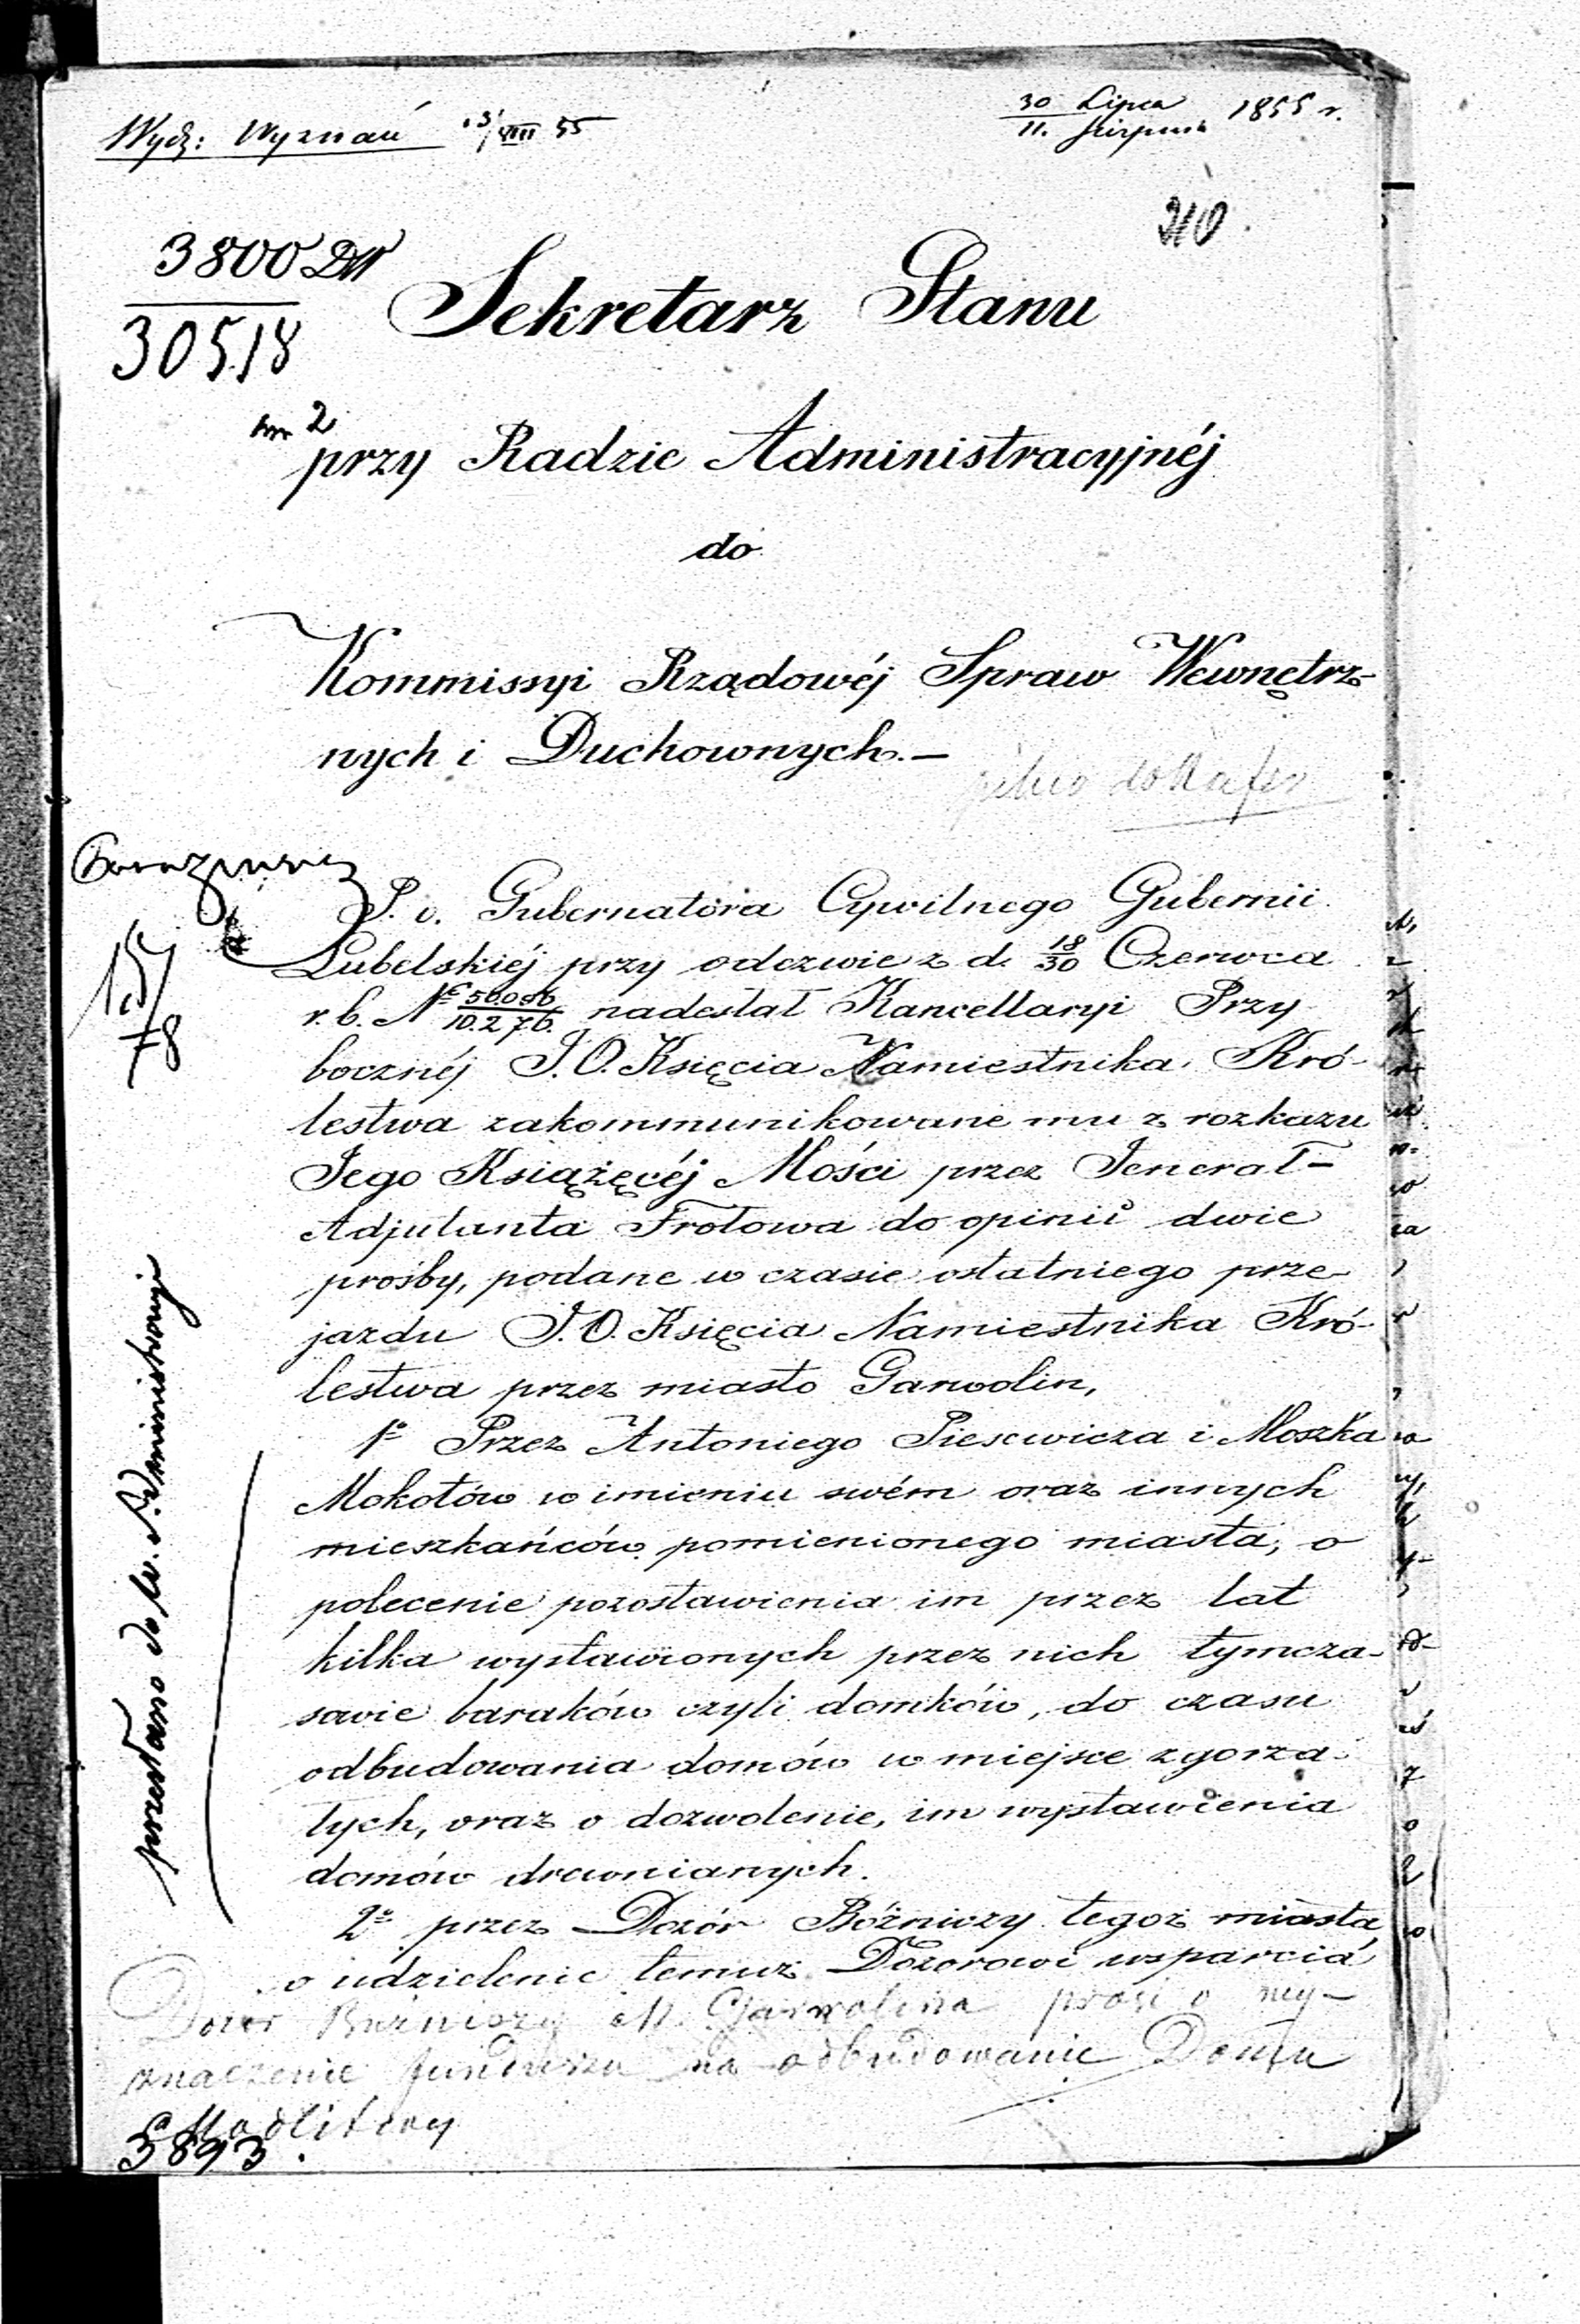 Wydz: Wyznań 13/VIII 55
30 Lipca
11. Sierpnia 1855 r.
210.
3800 DW
30518
2
Sekretarz Stanu
przy Radzie Administracyjnéj
do
Kommissyi Rządowéj Spraw Wewnętrz-
nych i Duchownych.—
P. o. Gubernatora Cywilnego Gubernii
Lubelskiéj przy odezwie z d. 18/30 Czerwca
r. b. No 50.086/10.276. nadesłał Kancellaryi Przy
bocznéj J. O. Księcia Namiestnika Kró-
lestwa zakommunikowane mu z rozkazu
Jego Książęcéj Mości przez Jenerał-
Adjutanta Frołowa do opinii dwie
prośby, podane w czasie ostatniego prze-
jazdu J. O. Księcia Namiestnika Kró-
lestwa przez miasto Garwolin,
1o Przez Antoniego Piesiewicza i Moszka
Mokotów w imieniu swém oraz innych
mieszkańców pomienionego miasta, o
polecenie pozostawienia im przez lat
kilka wystawionych przez nich tymcza-
sowie baraków czyli domków, do czasu
odbudowania domów w miejsce zgorza-
łych, oraz o dozwolenie, im wystawienia
domów drewnianych.
2o przez Dozór Bóżniczy tegoż miasta
o udzielenie temuż Dozorowi wsparcia
15/
78
przesłano do W. Administracyi
Dozór Bużniczy M. Garwolina prosi o wy-
znaczenie funduszu na odbudowanie Domu
Modlitwy
5893.